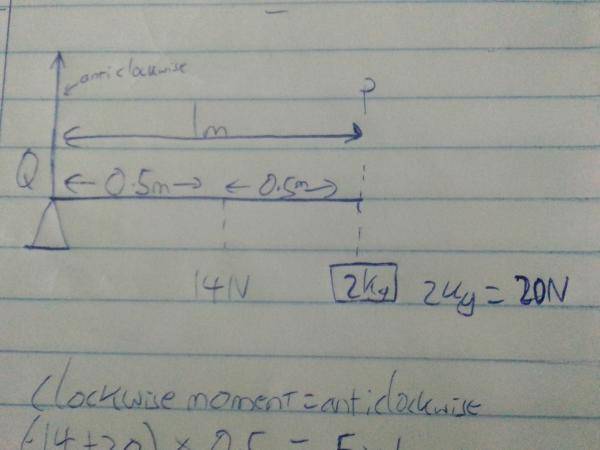 anticlockwise
P
1m
Q
0.5m 0.5m
14N 2kg 2kg = 20N
Clockwise moment = anticlockwise
(14+20) × 0.5 =